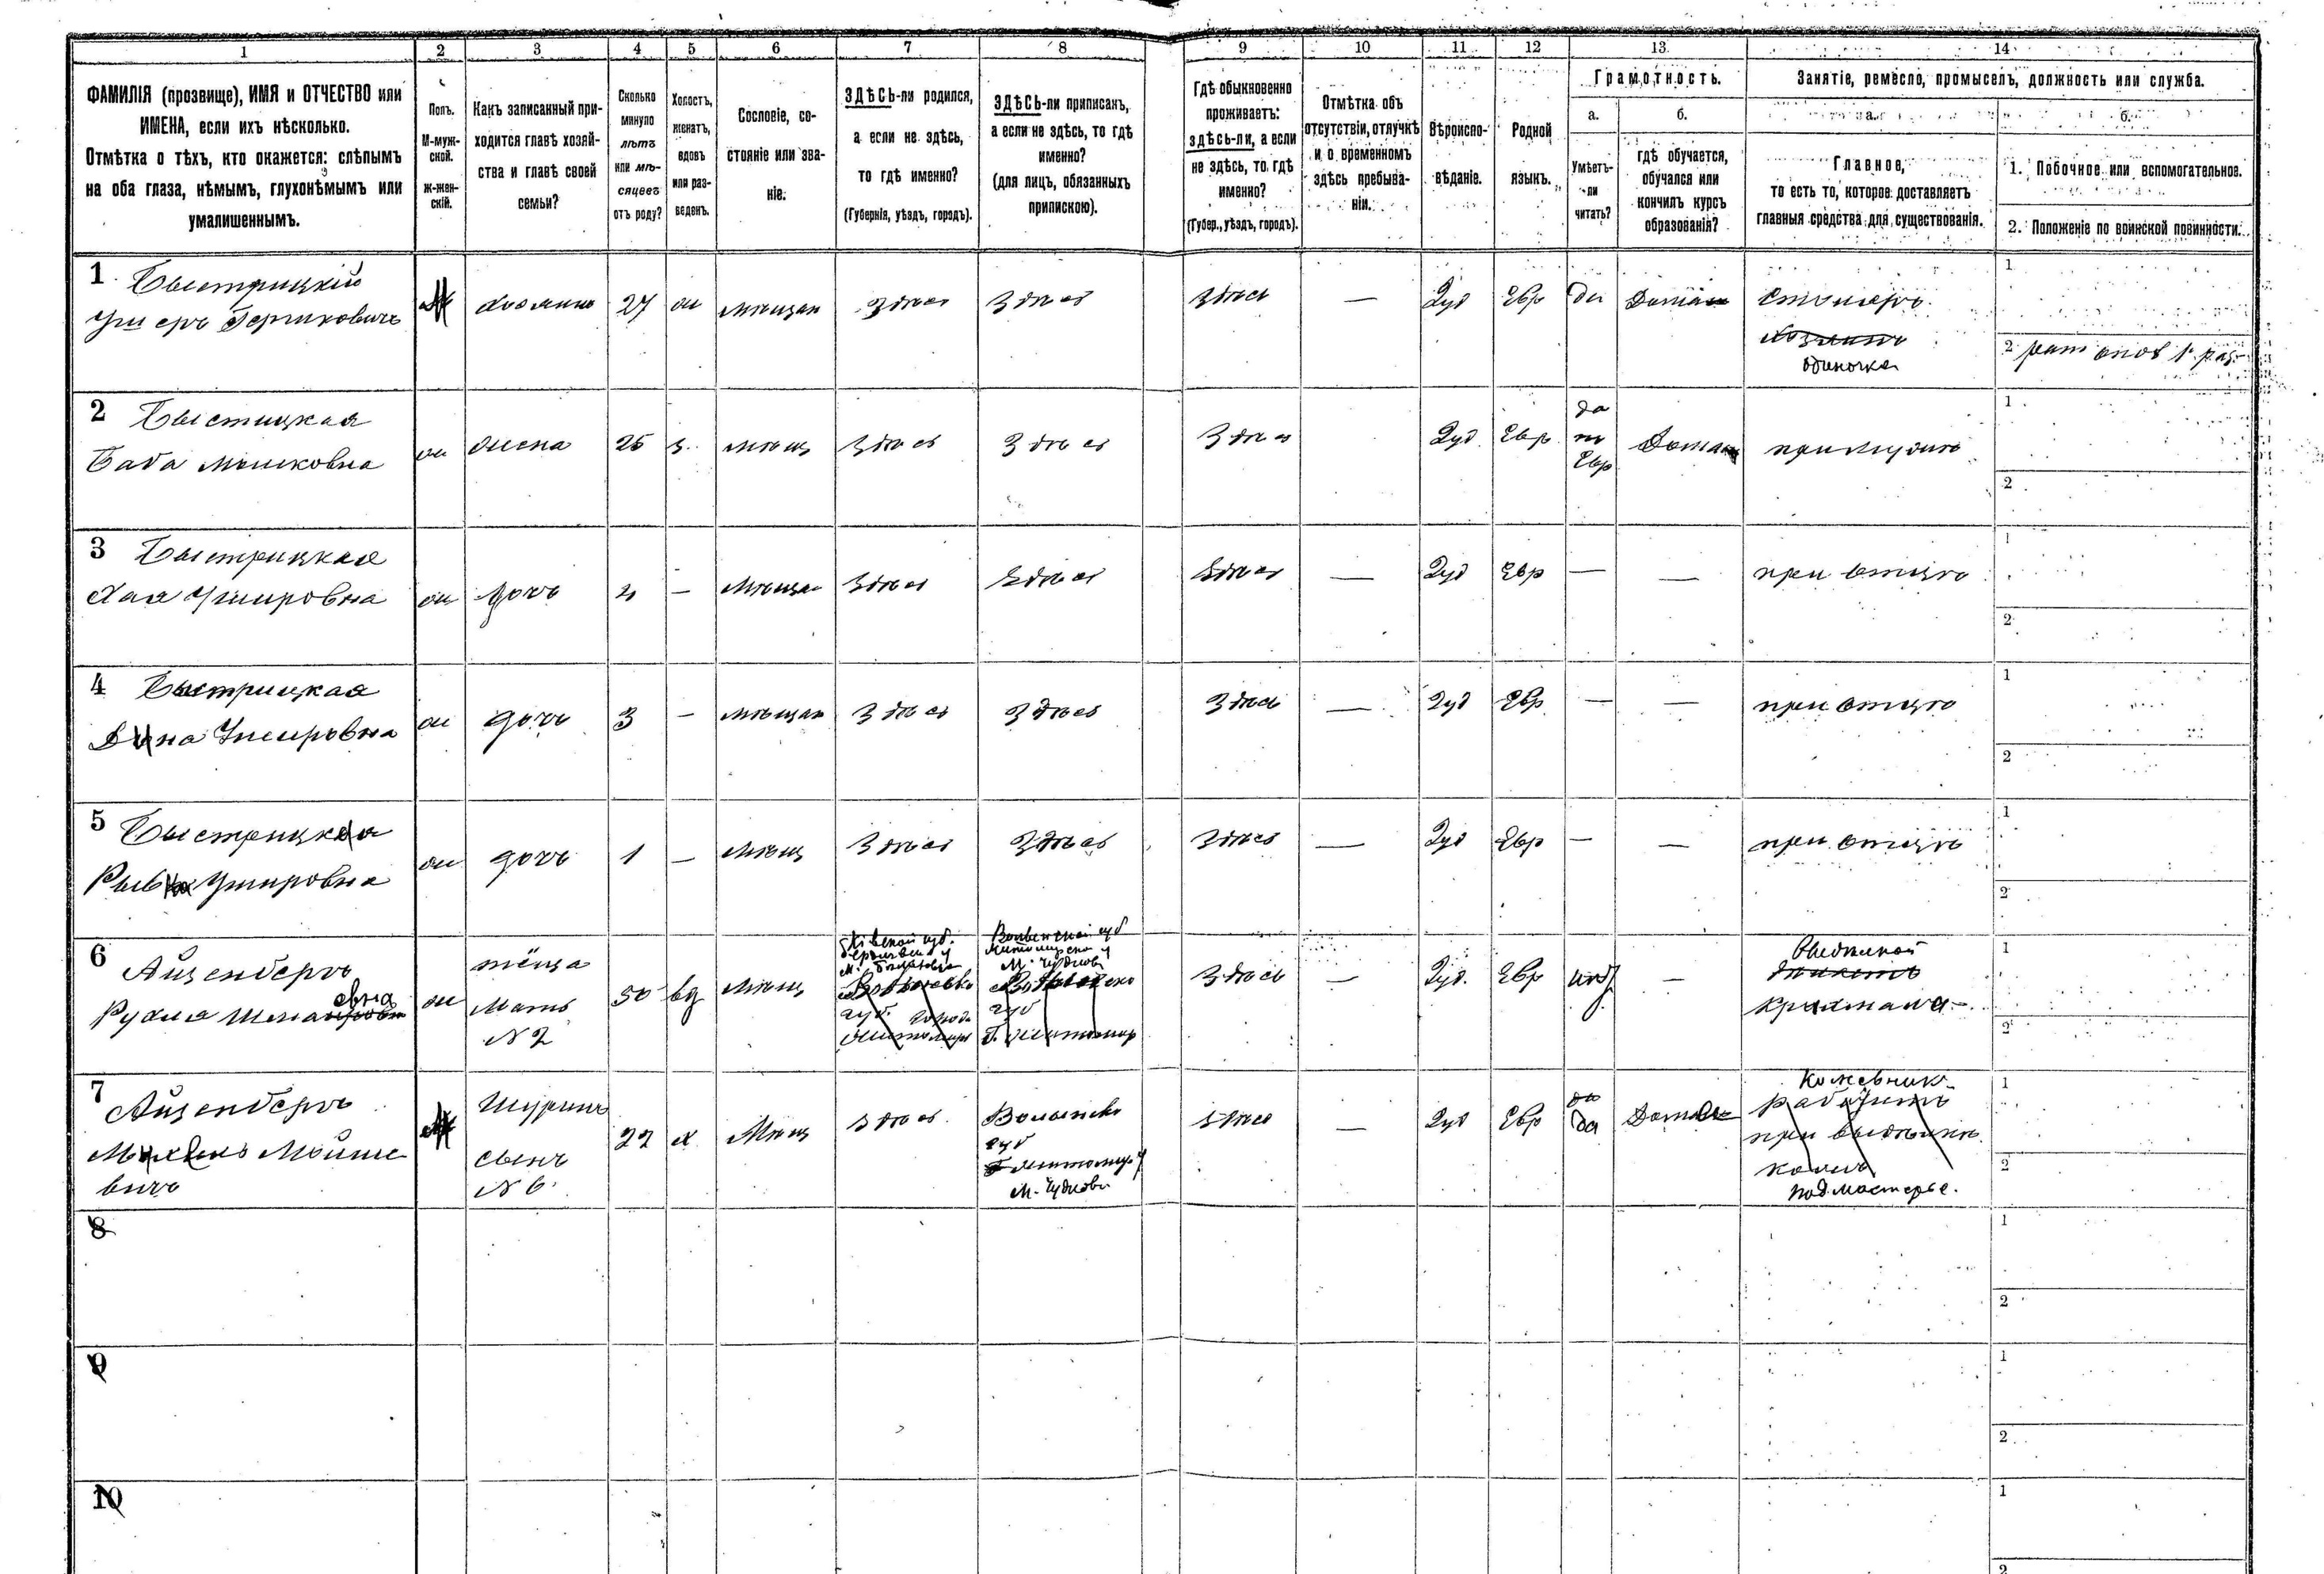 1 2 3 4 5 6 7 8 9 10 11 12 13 14
ФАМИЛІЯ (прозвище), ИМЯ и ОТЧЕСТВО или
ИМЕНА, если ихъ нѣсколько.
Отмѣтка о тѣхъ, кто окажется: слѣпымъ
на оба глаза, нѣмымъ, глухонѣмымъ или
умалишеннымъ.
Полъ.
М-муж-
ской.
Ж-жен-
скій.
Какъ записанный при-
ходится главѣ хозяй-
ства и главѣ своей
семьи?
Сколько
минуло
лѣтъ
или мѣ-
сяцевъ
отъ роду?
Холостъ,
женатъ,
вдовъ
или раз-
веденъ.
Сословіе, со-
стояніе или зва-
ніе.
ЗДѢСЬ-ли родился,
а если не здѣсь,
то гдѣ именно?
(Губернія, уѣздъ, городъ).
ЗДѢСЬ-ли приписанъ,
а если не здѣсь, то гдѣ
именно?
(для лицъ, обязанныхъ
припискою).
Гдѣ обыкновенно
проживаетъ:
здѣсь-ли, а если
не здѣсь, то гдѣ
именно?
(Губер., уѣздъ, городъ).
Отмѣтка объ
отсутствіи, отлучкѣ
и о временномъ
здѣсь пребыва-
ніи.
Вѣроиспо-
вѣданіе.
Родной
языкъ.
Грамотность.
а.
Умѣетъ-
ли
читать?
б.
гдѣ обучается,
обучался или
кончилъ курсъ
образованія?
Занятіе, ремесло, промыселъ, должность или служба.
а.
Главное,
то есть то, которое доставляетъ
главныя средства для существованія.
б.
1. Побочное или вспомогательное.
2. Положеніе по воинской повинности.
1 Быстрицкій
Ушеръ Гершковичъ
М
хозяинъ
27
ж
мѣщан
Здѣсь
Здѣсь
Здѣсь
—
Іуд
Евр
да
Дома
Столяръ
хозяинъ
одиночка
1
2 рат опол 1 раз
2 Быстицкая
Баба Мошковна
ж
жена
25
з.
мѣщ
Здѣсь
Здѣсь
Здѣсь
Іуд
Евр
да
по
Евр
Дома
при мужѣ
1
2
3 Быстрицкая
Хая Ушировна
ж
дочь
4
—
мѣщан
Здѣсь
Здѣсь
Здѣсь
—
Іуд
Евр
—
—
при отцѣ
1
2
4 Быстрицкая
Дина Ушировна
ж
дочь
3
—
мѣщан
Здѣсь
Здѣсь
Здѣсь
—
Іуд
Евр
—
—
при отцѣ
1
2
5 Быстрицкая
Рыв Ушировна
ж
дочь
1
—
мѣщ
Здѣсь
Здѣсь
Здѣсь
—
Іуд
Евр
—
—
при отцѣ
1
2
6 Айзенберъ
Рухля
овна
ж
тёща
Мать
N 2
50
вд
мѣщ
Кіевской губ.
Волынской губ
Житомирско у
М. Чудновъ
губ. город
Житомиръ
губ
г. Житомир
Здѣсь
—
Іуд.
Евр
нѣт
—
1
2
7 Айзенберъ
Мойше
вичъ
М
Шуринъ
сынъ
N 6
22
х
Мѣщ
Здѣсь
Волынско
губ
Житомир у
М. Чуднов
Здѣсь
—
Іуд
Евр
да
Дома
Кожевник
при выдѣлкѣ
кожъ
подмастерье.
1
2
8
1
2
9
1
2
10
1
2